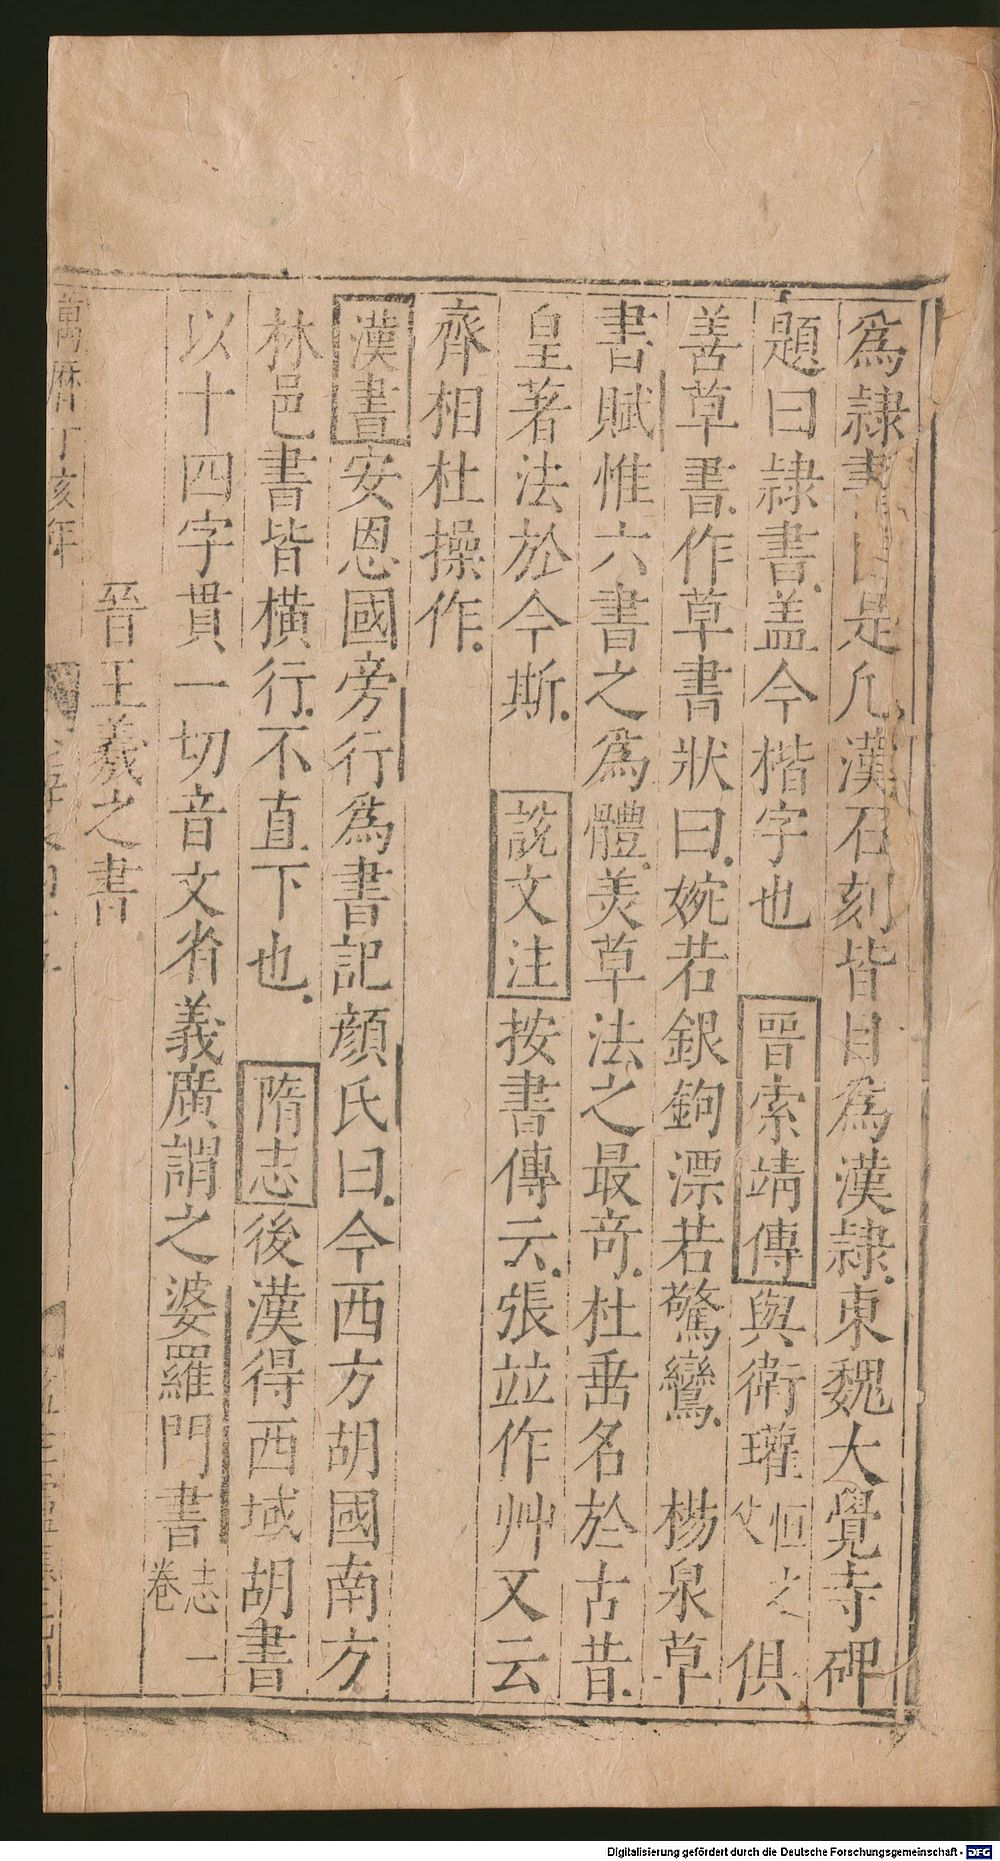 為隸書自是凡漢石刻皆目為漢隸東魏大覺寺碑
題曰隸書盖今楷字也　晉索靖傳與衛瓘恒之父俱
善草書作草書狀曰婉若銀鉤漂若驚鸞　楊泉草
書賦惟六書之為體羙草法之最竒杜垂名於古昔
皇著法於今斯　說文注按書傳云張並作艸又云
齊相杜操作
漢書安息國旁行為書記顏氏曰今西方胡國南方
林邑書皆橫行不直下也　隋志後漢得西域胡書
以十四字貫一切音文省義廣謂之婆羅門書志一卷
晉王羲之書
萬曆丁亥年
Digitalisierung gefördert durch die Deutsche Forschungsgemeinschaft - DFG